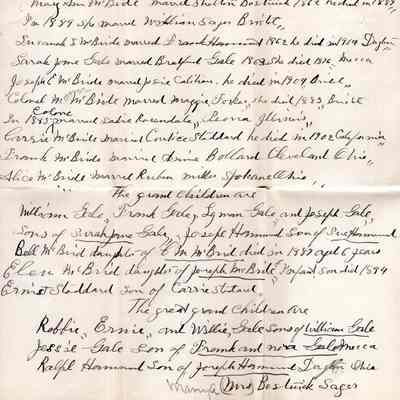 Mary Ann McBride married Shelton Bostwick 1862 he died in 1885
In 1889 she married William Sager Bristl,,
Susanah I McBride married Frank Hammond 1862 he died in 1914 Dayton,,
Sarah Jane McBride married Bradford Gale 1863 She died 1916 Mecca
Joseph E McBride married Josie Calihan. he died in 1904 Bristl,,
Colonel M McBride married Maggie she died 1883, Bristl
In 1885 Colonel married Sadie Rosendale,, Peoria Illinois,,
Carrie McBride married Curtice Stoddard he died in 1902 California,,
Frank McBride married Anna Bollard Cleveland Ohio,,
Alice McBride married Ruben Miller Ohio,,
The grand Children are
William Gale, Frank Gale, Lyman Gale and Joseph Gale,
Sons of Sarah Jane Gale, Joseph Hammond Son of Sue Hammond
Bell McBrid daughter of C M McBrid died in 1887 aged 6 years
Elen McBrid daughter of Joseph McBride,, Infant son died 1894
Ernist Stoddard Son of Carrie Stodard,
The great grand Children are
Robbie,, Ernie,, and Willie Gale Sons of William Gale
Jessie Gale Son of Frank and Nora Gale Mecca
Ralph Hammond Son of Joseph Hammond Dayton Ohio
(Mrs) Bostwick Sager